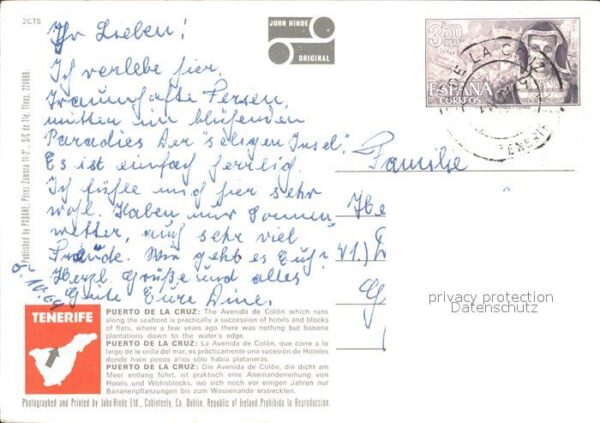 2CT5
Ihr Lieben!
Ich verlebe hier
traumhafte Ferien,
mitten im blühenden
Paradies der "seligen Insel".
Es ist einfach herrlich.
Ich fühle mich hier sehr
wohl. Haben nur Sonnen-
wetter, auch sehr viel
Freude. Wie geht es Euch?
Herzl. Grüße und alles
Gute Eure
JOHN HINDE
ORIGINAL
3,50
PTAS
ESPAÑA
CORREOS
DE LA CRUZ
TENERIFE
Familie
41.)
privacy protection
Datenschutz
Published by PADANE, Perez Zamora
TENERIFE
PUERTO DE LA CRUZ: The Avenida de Colón which runs
along the seafront is practically a succession of hotels and blocks
of flats, where a few years ago there was nothing but banana
plantations down to the water's edge.
PUERTO DE LA CRUZ: La Avenida de Colón, que corre a lo
largo de le orilla del mar, es prácticamente una sucesión de Hoteles
donde hace pocos años sólo había plataneras.
PUERTO DE LA CRUZ: Die Avenida de Colón, die dicht am
Meer entlang führt, ist praktisch eine Aneinanderreihung von
Hotels und Wohnblocks, wo sich noch vor einigen Jahren nur
Bananenpflanzungen bis zum Wasserrande erstreckten.
Photographed and Printed by John Hinde Ltd., Cabinteely, Co. Dublin, Republic of Ireland Prohibida la Reproduccion.